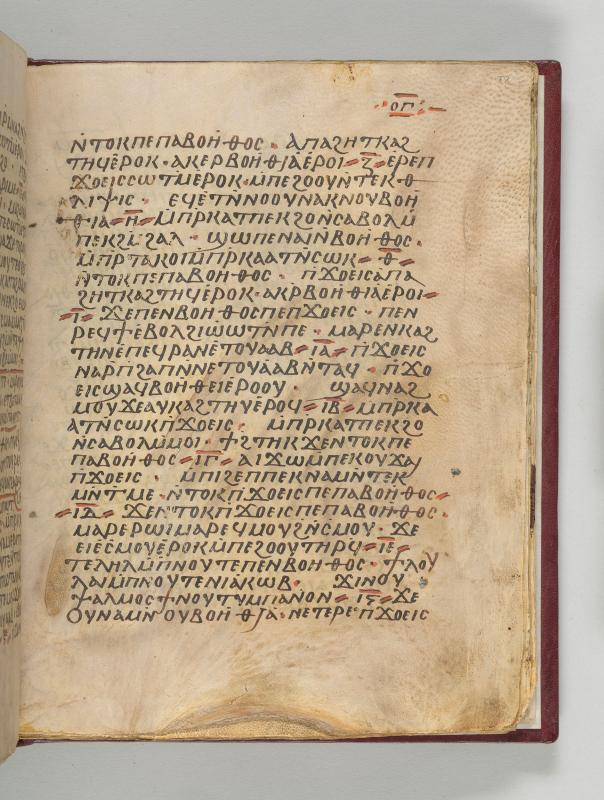 ⲟⲅ
ⲛ̀ⲧⲟⲕⲡⲉⲡⲁⲃⲟⲏ̀ⲑⲟⲥ · ⲁⲡⲁϩⲏⲧⲕⲁϩ
ⲧⲏϥⲉ̀ⲣⲟⲕ · ⲁⲕⲉⲣⲃⲟⲏ̀ⲑⲓⲁ̀ⲉⲣⲟⲓ – ⲍ̅ – ⲉ̀ⲣⲉⲡ
ϫⲟⲉⲓⲥⲥⲱⲧⲙ̀ⲉⲣⲟⲕ · ⲙ̀ⲡⲉϩⲟⲟⲩⲛ̀ⲧⲉⲕⲑ
ⲗⲓⲯⲓⲥ · ⲉϥⲉ̀ⲧⲛ̀ⲛⲟⲟⲩⲛⲁⲕⲛⲟⲩⲃⲟⲏ
ⲑⲓⲁ – ⲏ̅ – ⲙ̀ⲡⲣ̀ⲕⲁⲧⲡⲉⲕϩⲟⲛ̀ⲥⲁⲃⲟⲗⲙ̀
ⲡⲉⲕϩⲙ̀ϩⲁⲗ · ⲱ̀ⲱⲡⲉⲛⲁⲓ̈ⲛ̀ⲃⲟⲏ̀ⲑⲟⲥ ·
ⲙ̀ⲡⲣ̀ⲧⲁⲕⲟⲓⲙ̀ⲡⲣ̀ⲕⲁⲁⲧⲛ̀ⲥⲱⲕ – ⲑ̅ –
ⲛ̀ⲧⲟⲕⲡⲉⲡⲁⲃⲟⲏ̀ⲑⲟⲥ · ⲡ̀ϫⲟⲉⲓⲥⲁ̀ⲡⲁ
ϩⲏⲧⲕⲁϩⲧⲏϥⲉ̀ⲣⲟⲕ · ⲁⲕⲣ̀ⲃⲟⲏ̀ⲑⲓⲁ̀ⲉⲣⲟⲓ –
– ⲓ̅ – ϫⲉⲡⲉⲛⲃⲟⲏ̀ⲑⲟⲥⲡⲉⲡϫⲟⲉⲓⲥ · ⲡⲉⲛ
ⲣⲉϥϯⲉ̀ⲃⲟⲗϩⲓϫⲱⲧⲛ̀ⲡⲉ · ⲙⲁⲣⲉⲛⲕⲁϩ
ⲧⲏⲛⲉ̀ⲡⲉϥⲣⲁⲛⲉ̀ⲧⲟⲩⲁⲁⲃ – ⲓ̅ⲁ̅ – ⲡ̀ϫⲟⲉⲓⲥ
ⲛⲁⲣⲡϩⲁⲡⲛ̀ⲛⲉⲧⲟⲩⲁ̀ⲁⲃⲛ̀ⲧⲁϥ · ⲡ̀ϫⲟ
ⲉⲓⲥⲱⲁϥⲃⲟⲏ̀ⲑⲉⲓⲉ̀ⲣⲟⲟⲩ · ϣⲁϥⲛⲁϩ
ⲙⲟⲩϫⲉⲁⲩⲕⲁϩⲧⲏⲩⲉ̀ⲣⲟϥ – ⲓ̅ⲃ̅ – ⲙ̀ⲡⲣ̀ⲕⲁ
ⲁⲧⲛ̀ⲥⲱⲕⲡ̀ϫⲟⲉⲓⲥ · ⲙ̀ⲡⲣ̀ⲕⲁⲧⲡⲉⲕϩⲟ
ⲛ̀ⲥⲁⲃⲟⲗⲙ̀ⲙⲟⲓ · ϯϩⲧⲏⲕϫⲉⲛⲧⲟⲕⲡⲉ
ⲡⲁⲃⲟⲏ̀ⲑⲟⲥ – ⲓ̅ⲅ̅ – ⲁⲓϫⲱⲙ̀ⲡⲉⲕⲟⲩϫⲁⲓ̈
ⲡ̀ϫⲟⲉⲓⲥ · ⲙ̀ⲡⲓϩⲉⲡⲡⲉⲕⲛⲁⲙⲛ̀ⲧⲉⲕ
ⲙⲛ̀ⲧⲙⲉ · ⲛ̀ⲧⲟⲕⲡ̀ϫⲟⲉⲓⲥⲡⲉⲡⲁⲃⲟⲏ̀ⲑⲟⲥ –
– ⲓ̅ⲇ̅ – ϫⲉⲛ̀ⲧⲟⲕⲡ̀ϫⲟⲉⲓⲥⲡⲉⲡⲁⲃⲟⲏ̀ⲑⲟⲥ ·
ⲙⲁⲣⲉⲣⲱⲓ̈ⲙⲁⲣⲉϥⲙⲟⲩϩⲛ̀ⲥⲙⲟⲩ · ϫⲉ
ⲉⲓⲉ̀ⲥⲙⲟⲩⲉ̀ⲣⲟⲕⲙ̀ⲡⲉϩⲟⲟⲩⲧⲏⲣϥ – ⲓ̅ⲉ̅ –
ⲧⲉⲗⲏⲗⲙ̀ⲡⲛⲟⲩⲧⲉⲡⲉⲛⲃⲟⲏ̀ⲑⲟⲥ · ϯⲗⲟⲩ
ⲗⲁⲓ̈ⲙ̀ⲡⲛⲟⲩⲧⲉⲛ̀ⲓⲁⲕⲱⲃ · ϫⲓⲛⲟⲩ
ⲯⲁⲗⲙⲟⲥϯⲛⲟⲩⲧⲩⲙⲡⲁⲛⲟⲛ – ⲓ̅ⲋ̅ – ϫⲉ
ⲟⲩⲛⲁⲙⲛ̀ⲟⲩⲃⲟⲏ̀ⲑⲓⲁ · ⲛⲉⲧⲉⲣⲉⲡ̀ϫⲟⲉⲓⲥ